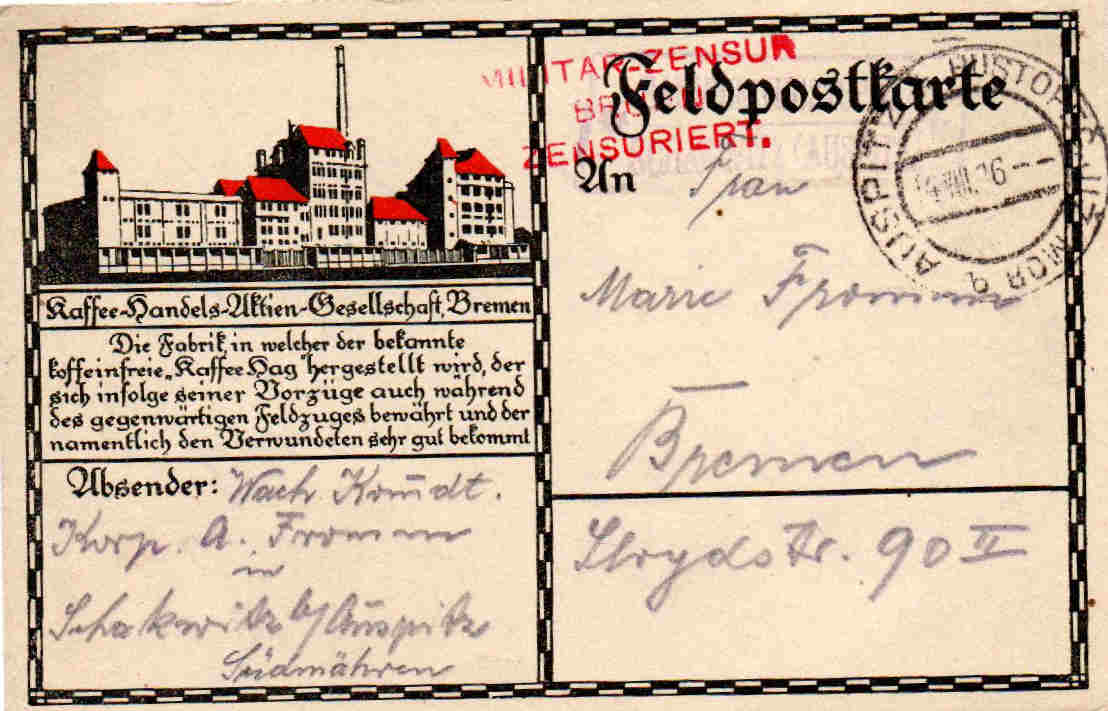 MILITÄR-ZENSUR
BRÜNN
ZENSURIERT.
Feldpostkarte
An Frau
Marie Fromm
Bremen
Lloydstr. 90 II
AUSPITZ HUSTOPEČ
14.VIII.16
Kaffee-Handels-Aktien-Gesellschaft, Bremen
Die Fabrik, in welcher der bekannte
koffeinfreie „Kaffee Hag“ hergestellt wird, der
sich infolge seiner Vorzüge auch während
des gegenwärtigen Feldzuges bewährt und der
namentlich den Verwundeten sehr gut bekommt
Absender: Wach Komdt.
Korp. A. Fromm
in
Schakwitz b/ Auspitz
Südmähren